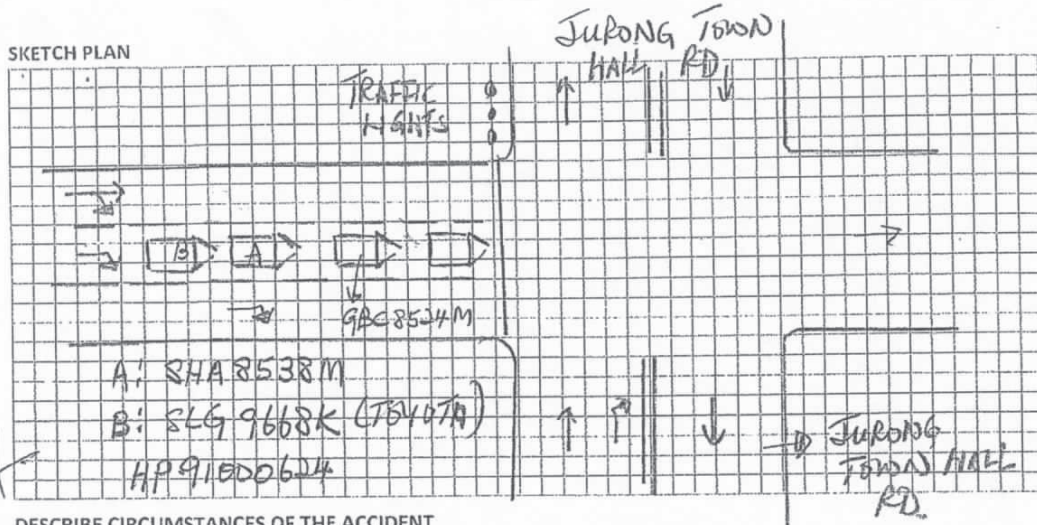 SKETCH PLAN
JURONG TOWN
HALL RD
TRAFFIC
LIGHTS
B
A
GBC8524M
A: SHA 8538M
B: SLG 9668K (TOYOTA)
HP 91000624
JURONG
TOWN HALL
RD.
DESCRIBE CIRCUMSTANCES OF THE ACCIDENT